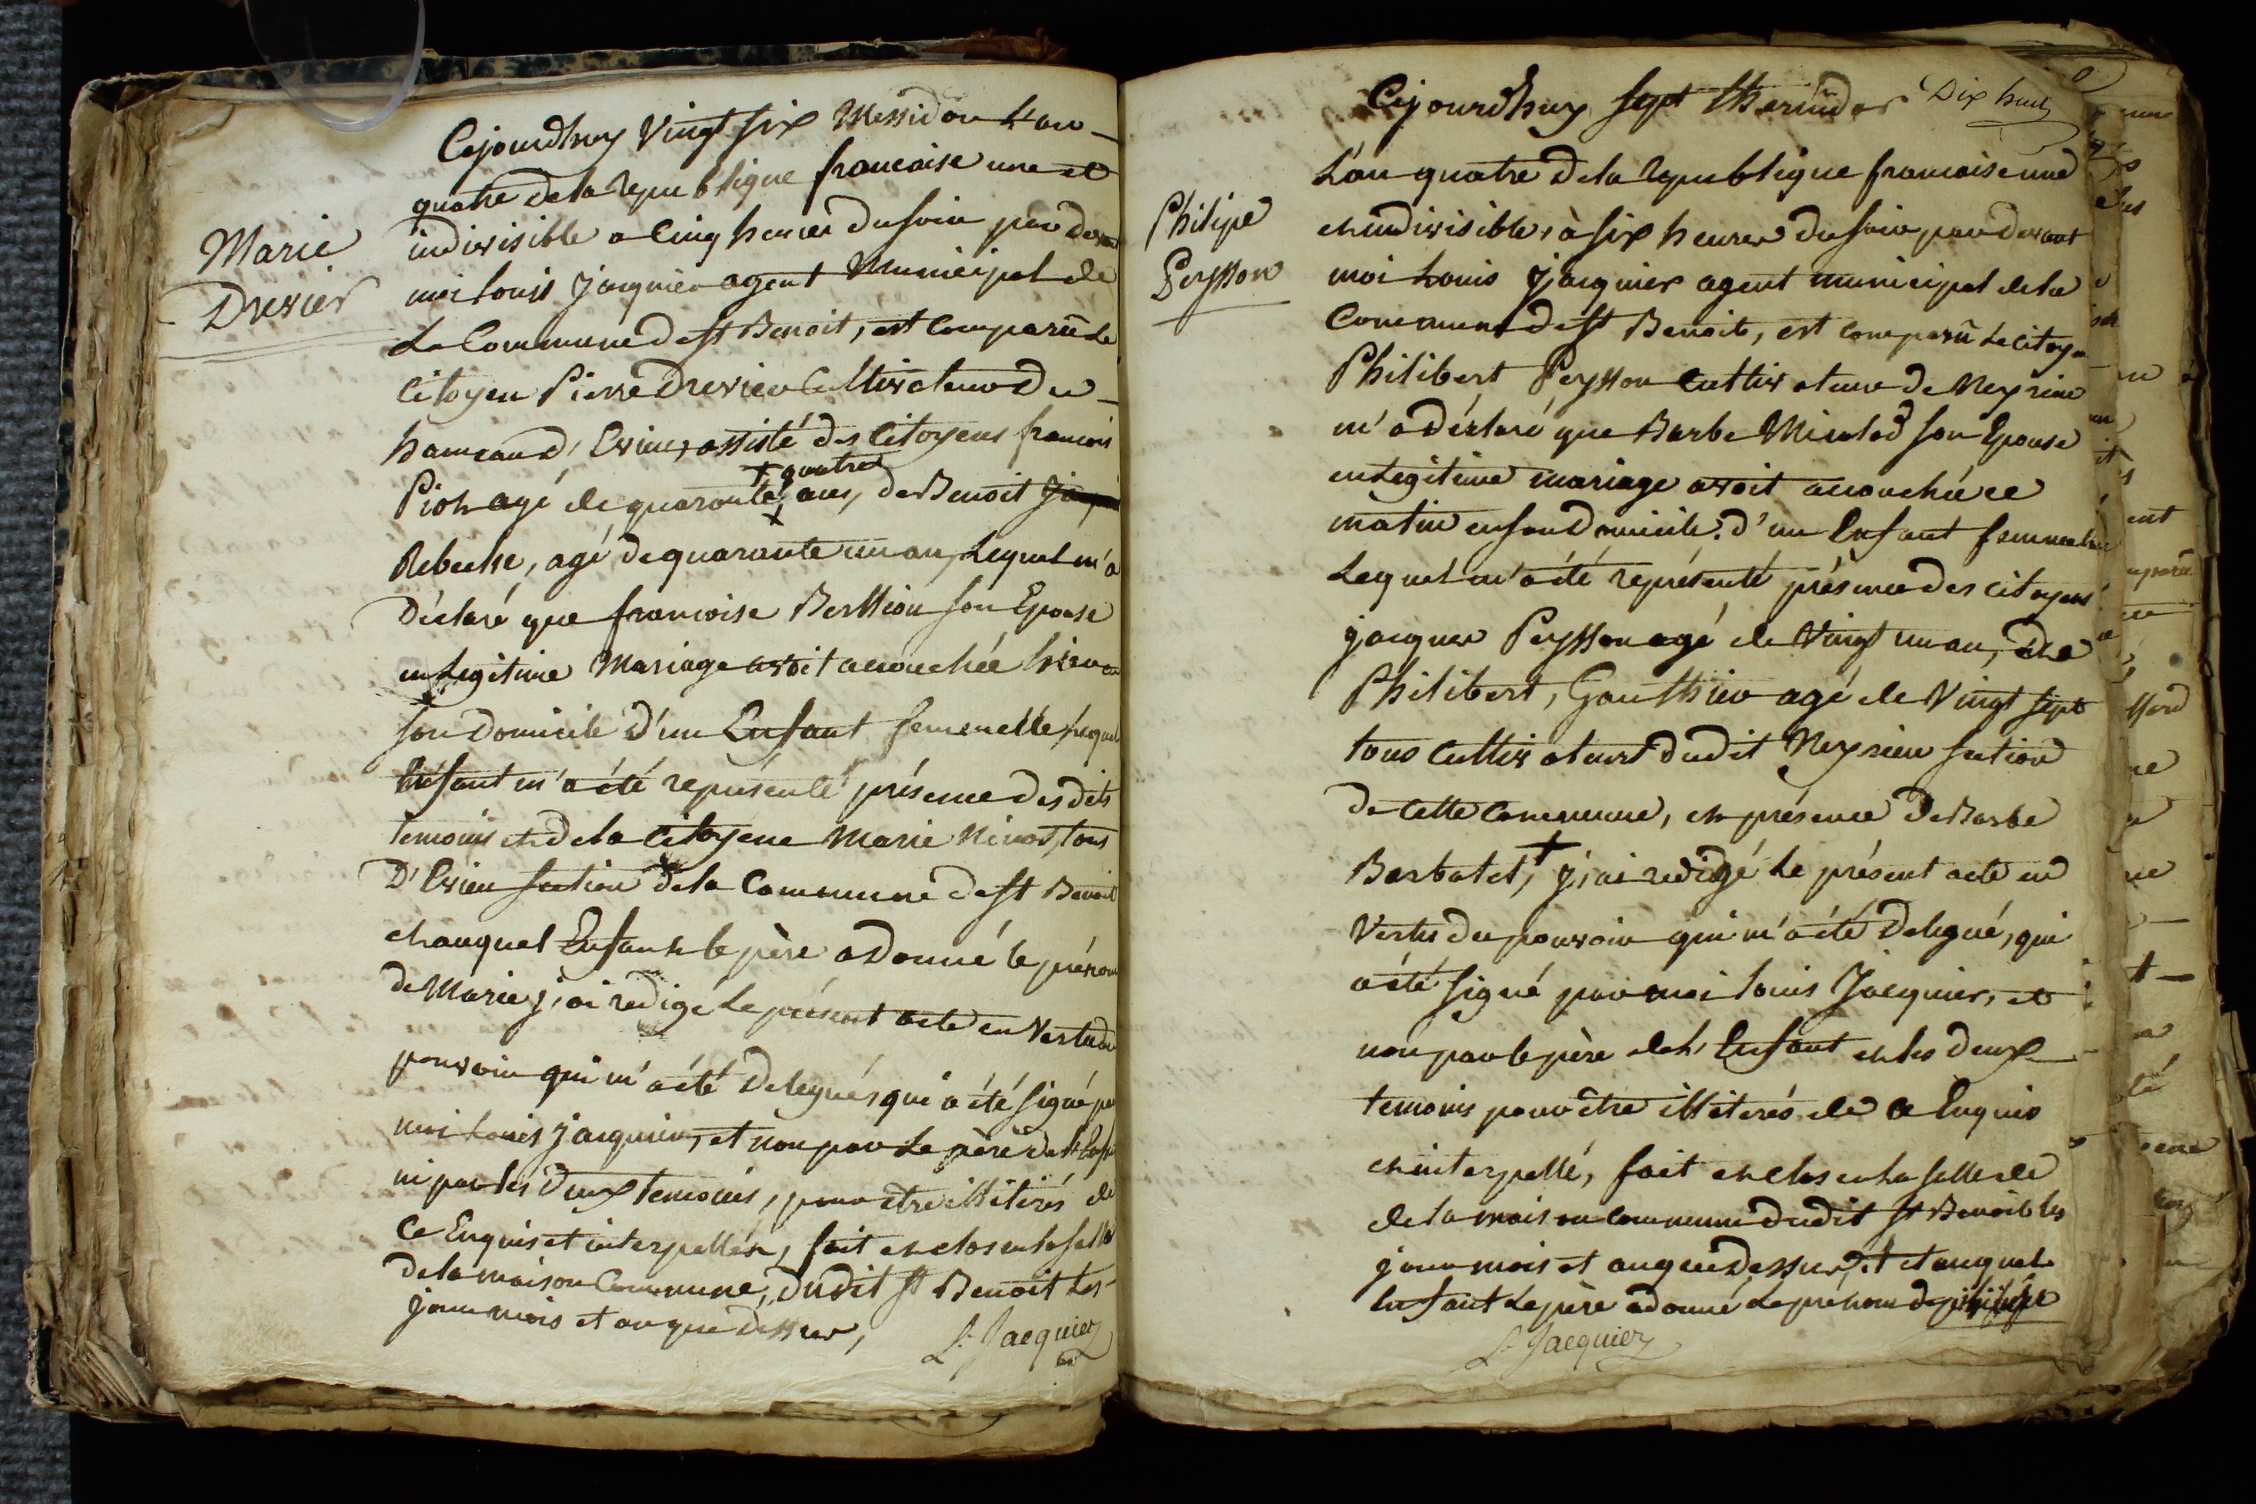 Cejourdhuy Vingt six Messidor L'an
quatre de la republique francaise une et
indivisible a Cinq heures du soir par devant
moi Louis Jacquier agent Municipal de
La Commune de st Benoit, est Comparû Le
Citoyen Pierre Drevier Cultivateur du
hameau d'Evieu, assisté des Citoyens francois
Piot agé de quarante, ans, de Benoit
+ quatre
Rebecke, agé de quarante un an, Lequel m'a
Déclaré que francoise Berthion son Epouse
en Legitime Mariage avoit accouchée hier en
son Domicile D'un Enfant femenelle, lequel
Enfant m'a été représenté présence des dits
temoins et de la Citoyene Marie Ninot, tous
D'Evieu section de la Commune de st Benoit
et auquel Enfant le père a Donné le prénom
de Marie, j'ai redigé Le présent acte en Vertu du
pouvoir qui m'a été Delegué, qui a été signé par
moi Louis Jacquier, et non par Le père de l'Enfant
ni par les Deux temoins, pour etre illitérés de
Ce Enquis et interpellés, fait et clos en la salle
de la maison Commune, dudit st Benoit Les
jour mois et an que dessus,
L. Jacquier
Marie
Drevier
Dix huit
Cejourdhuy sept thermidor
L'an quatre de la republique francaise une
et indivisible, à six heures du soir par devant
moi Louis Jacquier agent municipal de la
Commune de st Benoit, est comparû Le Citoyen
Philibert Peysson Cultivateur de Neyrieu
m'a déclaré que Barbe Micolod son Epouse
en Legitime mariage avoit accouchée ce
matin en son Domicile. d'un Enfant
Lequel m'a été représenté présence des citoyens
jacques Peysson agé de Vingt un an, de
Philibert, Gauthier agé de Vingt sept
tous Cultivateurs dudit Neyrieu section
de Cette Commune, et présence de Barbe
Barbatet, + j'ai redigé Le présent acte en
Vertu du pouvoir qui m'a été Delegué, qui
a été signé par moi Louis Jacquier, et
non par le père de l'Enfant et les deux
temoins pour être illiterés de Ce Enquis
et interpellé, fait et clos en La salle de
de la maison commune dudit st Benoit les
jour mois et an que Dessus, + et auquel
Enfant Le père a donné Le prénom de philipe
L. Jacquier
Philipe
Peysson